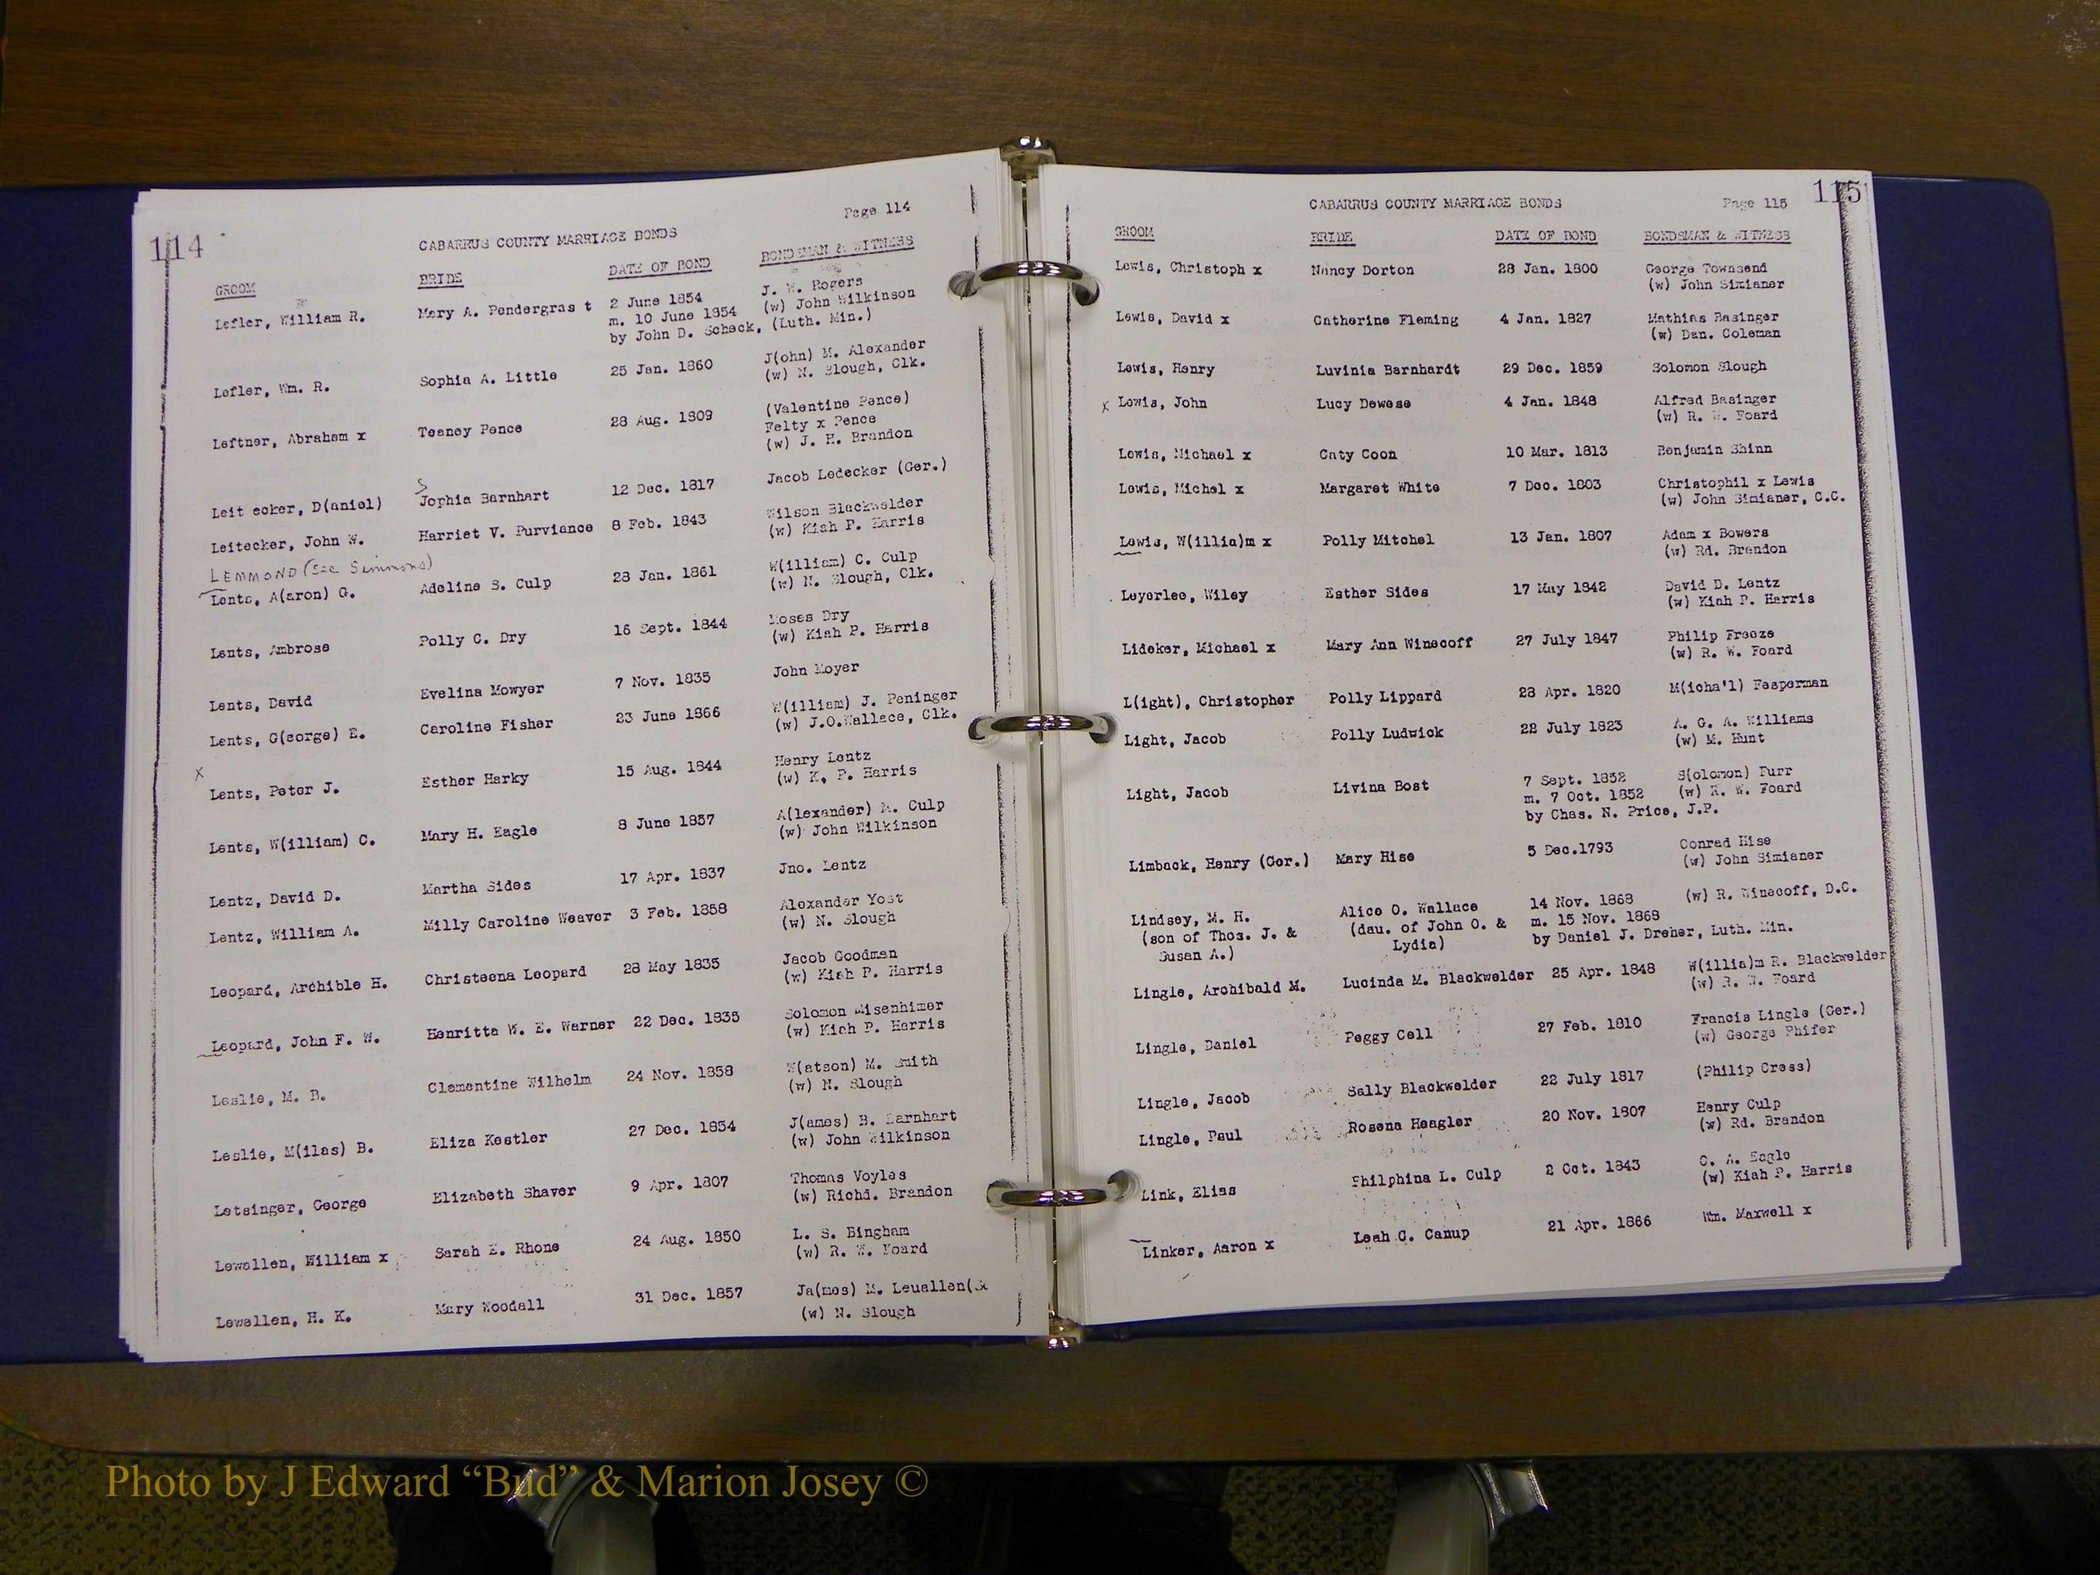 114
Page 114
CABARRUS COUNTY MARRIAGE BONDS
GROOM BRIDE DATE OF BOND BONDSMAN & WITNESS
Lefler, William R. Mary A. Pendergras t 2 June 1854 J. W. Rogers
m. 10 June 1854 (w) John Wilkinson
by John D. Scheck, (Luth. Min.)
Lefler, Wm. R. Sophia A. Little 25 Jan. 1860 J(ohn) M. Alexander
(w) N. Slough, Clk.
Leftner, Abraham x Teeney Pence 28 Aug. 1809 (Valentine Pence)
Felty x Pence
(w) J. H. Brandon
Leit ecker, D(aniel) Jophia Barnhart 12 Dec. 1817 Jacob Ledecker (Ger.)
S
Leitecker, John W. Harriet V. Purviance 8 Feb. 1843 Wilson Blackwelder
(w) Kiah P. Harris
LEMMOND (see Simmons)
Lents, A(aron) G. Adeline S. Culp 28 Jan. 1861 W(illiam) C. Culp
(w) N. Slough, Clk.
Lents, Ambrose Polly C. Dry 16 Sept. 1844 Moses Dry
(w) Kiah P. Harris
Lents, David Evelina Mowyer 7 Nov. 1835 John Moyer
Lents, G(eorge) E. Caroline Fisher 23 June 1866 W(illiam) J. Peninger
(w) J.O.Wallace, Clk.
x Lents, Peter J. Esther Harky 15 Aug. 1844 Henry Lentz
(w) K. P. Harris
Lents, W(illiam) C. Mary H. Eagle 8 June 1857 A(lexander) M. Culp
(w) John Wilkinson
Lentz, David D. Martha Sides 17 Apr. 1837 Jno. Lentz
Lentz, William A. Milly Caroline Weaver 3 Feb. 1858 Alexander Yost
(w) N. Slough
Leopard, Archible H. Christeena Leopard 28 May 1835 Jacob Goodman
(w) Kiah P. Harris
Leopard, John F. W. Henritta W. E. Warner 22 Dec. 1835 Solomon Misenhimer
(w) Kiah P. Harris
Leslie, M. B. Clementine Wilhelm 24 Nov. 1858 W(atson) M. Smith
(w) N. Slough
Leslie, M(ilas) B. Eliza Kestler 27 Dec. 1854 J(ames) B. Earnhart
(w) John Wilkinson
Letsinger, George Elizabeth Shaver 9 Apr. 1807 Thomas Voyles
(w) Richd. Brandon
Lewellen, William x Sarah E. Rhone 24 Aug. 1850 L. S. Bingham
(w) R. W. Foard
Lewellen, H. K. Mary Woodall 31 Dec. 1857 Ja(mes) M. Leuallen(
(w) N. Slough
115
Page 115
CABARRUS COUNTY MARRIAGE BONDS
GROOM BRIDE DATE OF BOND BONDSMAN & WITNESS
Lewis, Christoph x Nancy Dorton 28 Jan. 1800 George Townsend
(w) John Simianer
Lewis, David x Catherine Fleming 4 Jan. 1827 Mathias Basinger
(w) Dan. Coleman
Lewis, Henry Luvinia Barnhardt 29 Dec. 1859 Solomon Slough
x Lewis, John Lucy Dewese 4 Jan. 1848 Alfred Basinger
(w) R. W. Foard
Lewis, Michael x Caty Coon 10 Mar. 1813 Benjamin Shinn
Lewis, Michel x Margaret White 7 Dec. 1803 Christophil x Lewis
(w) John Simianer, C.C.
Lewis, W(illia)m x Polly Mitchel 13 Jan. 1807 Adam x Bowers
(w) Rd. Brandon
Leyerlee, Wiley Esther Sides 17 May 1842 David D. Lentz
(w) Kiah P. Harris
Lideker, Michael x Mary Ann Winecoff 27 July 1847 Philip Freeze
(w) R. W. Foard
L(ight), Christopher Polly Lippard 28 Apr. 1820 M(icha'l) Fesperman
Light, Jacob Polly Ludwick 22 July 1823 A. G. A. Williams
(w) M. Hunt
Light, Jacob Livina Bost 7 Sept. 1852 S(olomon) Furr
m. 7 Oct. 1852 (w) R. W. Foard
by Chas. N. Price, J.P.
Limback, Henry (Ger.) Mary Hise 5 Dec.1793 Conrad Hise
(w) John Simianer
Lindsey, M. H. Alice O. Wallace 14 Nov. 1868 (w) R. Winecoff, D.C.
(son of Thos. J. & (dau. of John O. & m. 15 Nov. 1868
Susan A.) Lydia) by Daniel J. Dreher, Luth. Min.
Lingle, Archibald M. Lucinda M. Blackwelder 25 Apr. 1848 W(illia)m R. Blackwelder
(w) R. W. Foard
Lingle, Daniel Peggy Cell 27 Feb. 1810 Francis Lingle (Ger.)
(w) George Phifer
Lingle, Jacob Sally Blackwelder 22 July 1817 (Philip Cress)
Lingle, Paul Rosena Heagler 20 Nov. 1807 Henry Culp
(w) Rd. Brandon
Link, Elias Philphina L. Culp 2 Oct. 1843 C. A. Eagle
(w) Kiah P. Harris
Linker, Aaron x Leah C. Canup 21 Apr. 1866 Wm. Maxwell x
Photo by J Edward “Bud” & Marion Josey ©